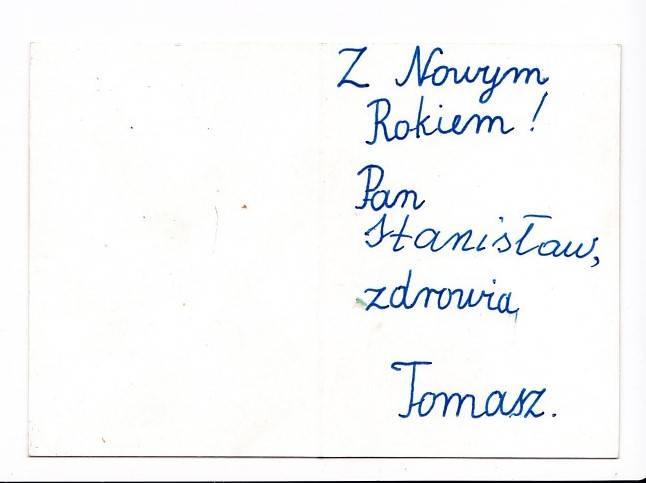 Z Nowym
Rokiem!
Pan
Stanisław,
zdrowia,
Tomasz.